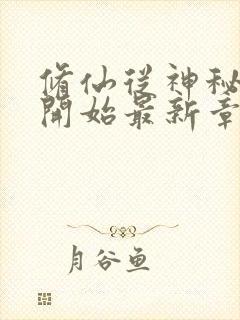 脩仙從神秘
開始最新章
月谷鱼